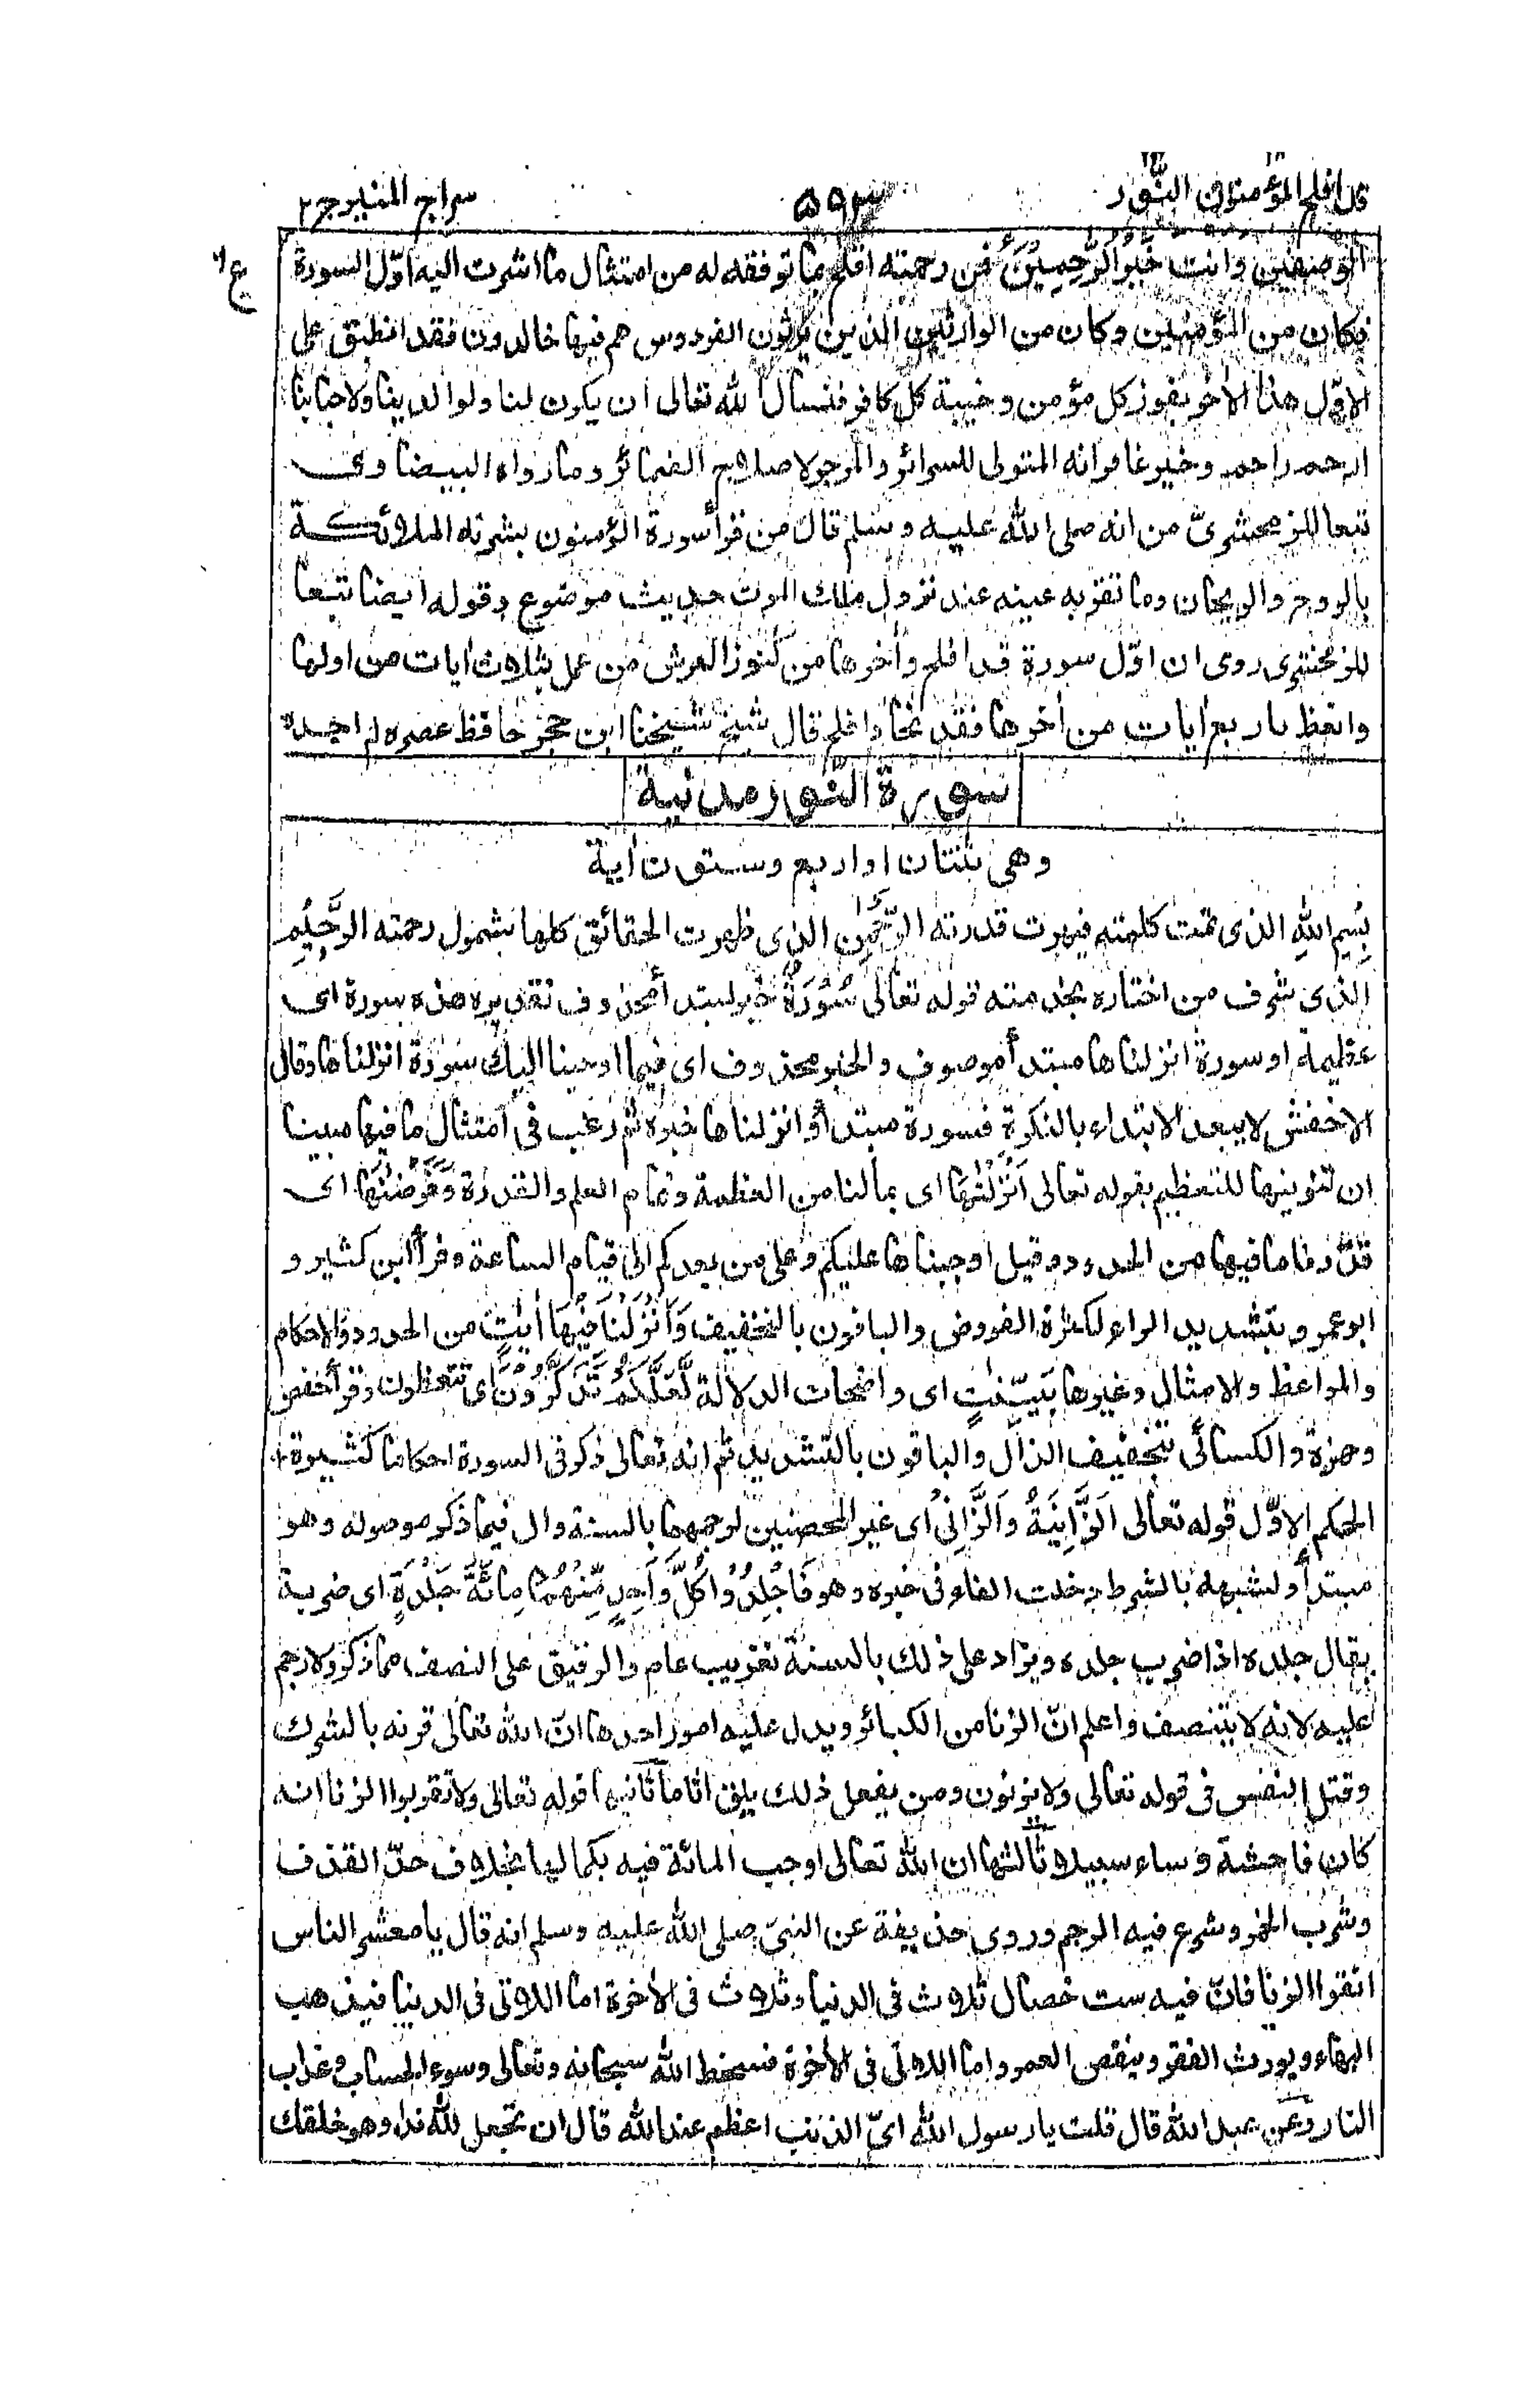 قد افلح المؤمنون النور ۵۹۳ سراج المنير ج۲
المؤمنين وانت خَيْرُ الرّٰحِمِيْنَ فمن رحمته افلح بما توفقه له من امتثال ما اشرت اليه اوّل السورة
فكان من المؤمنين وكان من الوارثين الذين يرثون الفردوس هم فيها خالدون فقد انطبق على
الاوّل هذا الأخر بفوز كل مؤمن وخيبة كل كافر فنسال الله تعالى ان يكون لنا ولوالدينا ولاحبابنا
ارحم راحم وخير غافر انه المتولى للسرائر والمرجو لاصلاح الضمائر وما رواه البيضاوى
تبعا للزمخشرىّ من انه صلى الله عليه وسلم قال من قرأ سورة المؤمنون بشرته الملائكة
بالروح والريحان وما تقر به عينه عند نزول ملك الموت حديث موضوع وقوله ايضا تبعا
للزمخشرى روى ان اوّل سورة قد افلح وأخرها من كنوز العرش من عمل بثلاث أيات من اولها
واتعظ باربع أيات من أخرها فقد نجا وافلح قال شيخ شيخنا ابن حجر حافظ عصره لم اجده
سورة النور مدنية
وهى ثنتان او اربع وستون أية
بِسْمِ اللهِ الذى تمت كلمته فبهرت قدرته الرَّحْمٰنِ الذى ظهرت الحقائق كلها بشمول رحمته الرَّحِيْمِ
الذى شرف من اختاره بخدمته قوله تعالى سُوْرَةٌ خبر لمبتدأ محذوف تقديره هذه سورة اى
عظيمة او سورة انزلناها مبتدأ موصوف والخبر محذوف اى فيما اوحينا اليك سورة انزلناها وقال
الاخفش لا يبعد الابتداء بالنكرة فسورة مبتدأ وانزلناها خبره ثم رغب فى امتثال ما فيها مبينا
ان تنوينها للتعظيم بقوله تعالى اَنْزَلْنٰهَا اى بما لنا من العظمة وتمام العلم والقدرة وَفَرَضْنٰهَا اى
قدّرنا ما فيها من الحدود وقيل اوجبناها عليكم وعلى من بعدكم الى قيام الساعة وقرأ ابن كثير و
ابو عمرو بتشديد الراء لكثرة الفروض والباقون بالتخفيف وَاَنْزَلْنَا فِيْهَا اٰيٰتٍ من الحدود والاحكام
والمواعظ والامثال وغيرها بَيِّنٰتٍ اى واضحات الدلالة لَّعَلَّكُمْ تَذَكَّرُوْنَ اى تتعظون وقرأ حفص
وحمزة والكسائى بتخفيف الذال والباقون بالتشديد ثم انه تعالى ذكر فى السورة احكاما كثيرة
الحكم الاوّل قوله تعالى اَلزَّانِيَةُ وَالزَّانِىْ اى غير المحصنين لرجمهما بالسنة وال فيما ذكر موصولة وهو
مبتدأ ولشبهه بالشرط دخلت الفاء فى خبره وهو فَاجْلِدُوْا كُلَّ وَاحِدٍ مِّنْهُمَا مِائَةَ جَلْدَةٍ اى ضربة
يقال جلده اذا ضرب جلده ويزاد على ذلك بالسنة تغريب عام والرقيق على النصف مما ذكر ولا رجم
عليه لانه لا يتنصف واعلم انّ الزنا من الكبائر ويدل عليه امور احدها انّ الله تعالى قرنه بالشرك
وقتل النفس فى قوله تعالى ولا يزنون ومن يفعل ذلك يلق اثاما ثانيها قوله تعالى ولا تقربوا الزنا انه
كان فاحشة وساء سبيلا ثالثها ان الله تعالى اوجب المائة فيه بكمالها بخلاف حدّ القذف
وشرب الخمر وشرع فيه الرجم وروى حذيفة عن النبىّ صلى الله عليه وسلم انه قال يا معشر الناس
اتقوا الزنا فانّ فيه ست خصال ثلاث فى الدنيا وثلاث فى الأخرة اما اللاتى فى الدنيا فيذهب
البهاء ويورث الفقر وينقص العمر واما اللاتى فى الأخرة فسخط الله سبحانه وتعالى وسوء الحساب وعذاب
النار وعن عبد الله قال قلت يا رسول الله اىّ الذنب اعظم عند الله قال ان تجعل لله ندا وهو خلقك